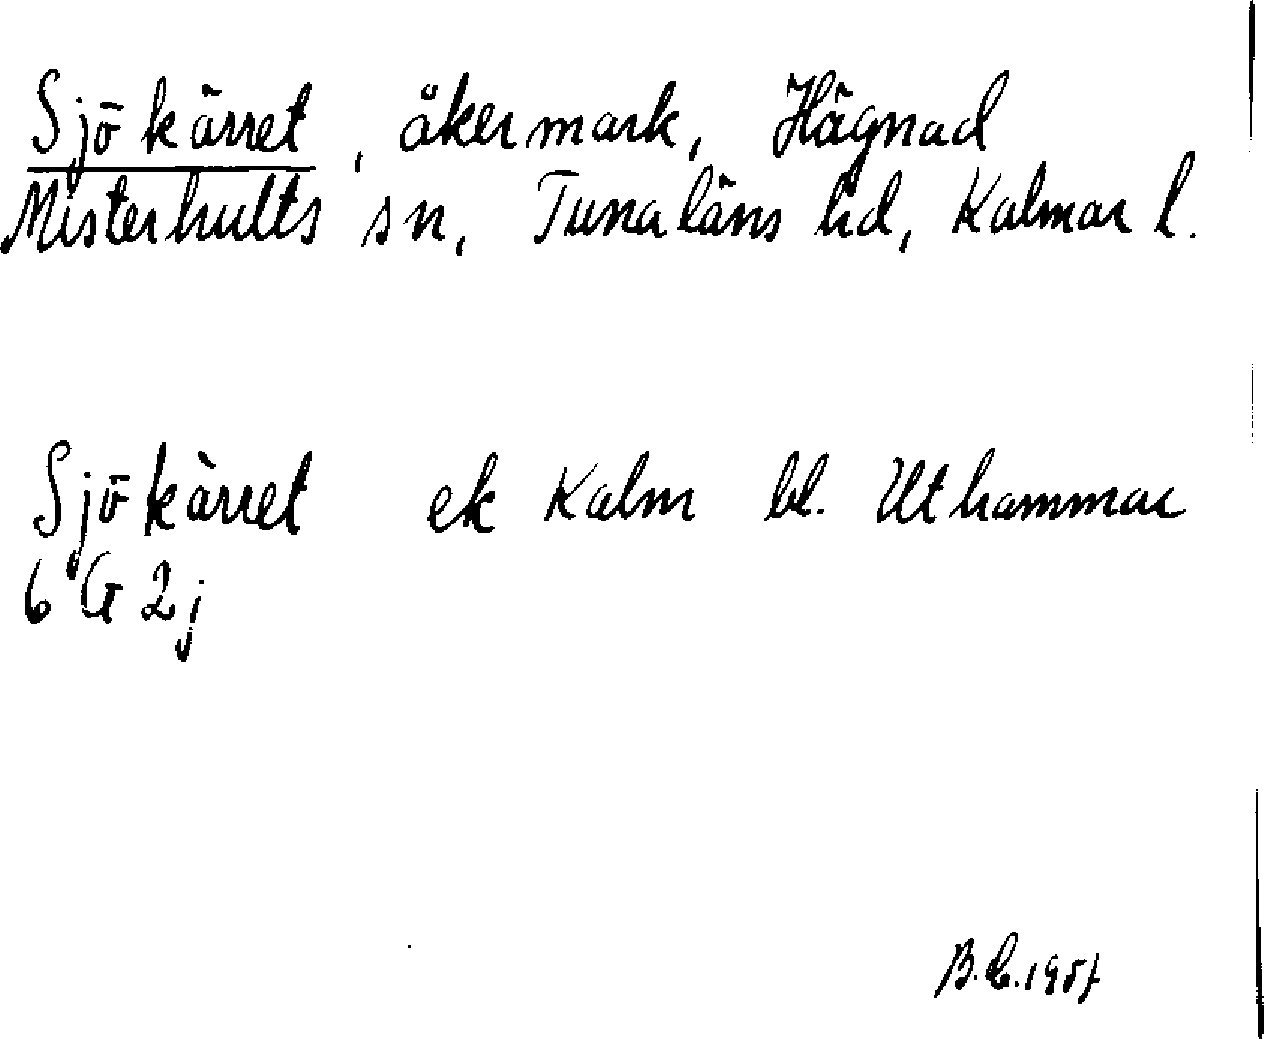 Sjökärret, åkermark, Hägnad
Misterhults sn, Tunaläns hd, Kalmar l.
Sjökärret ek Kalm bl. Uthammar
6 G 2j
1957